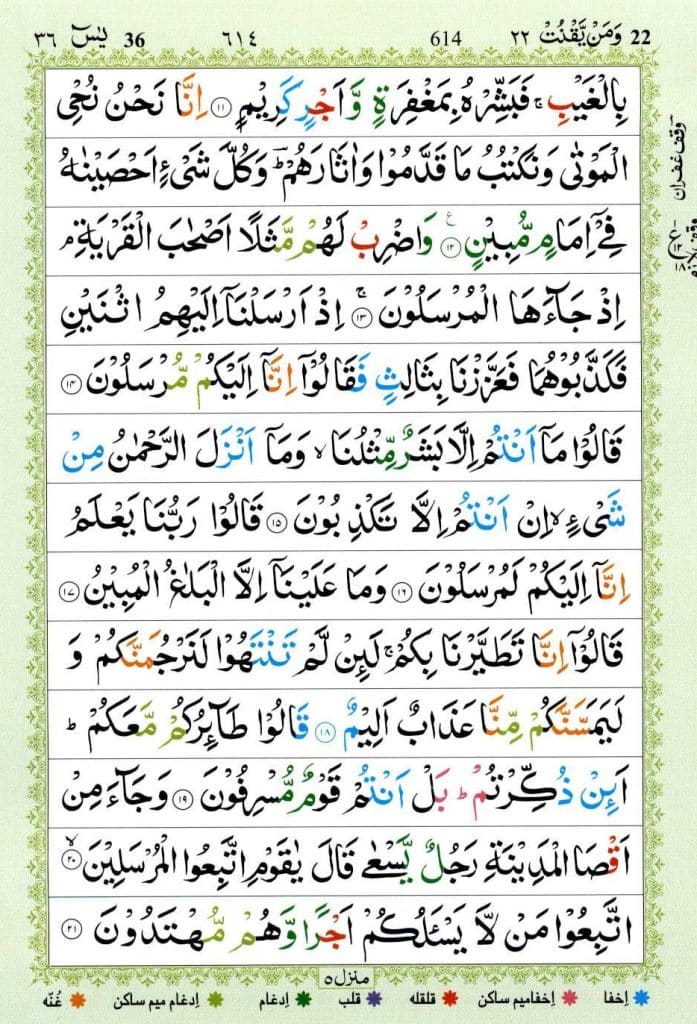 22 وَمَنْ يَّقْنُتْ ٢٢ 614 ٦١٤ 36 يٰسٓ ٣٦
بِالْغَيْبِ ۚ فَبَشِّرْهُ بِمَغْفِرَةٍ وَّاَجْرٍ كَرِيْمٍ ﴿١١﴾ اِنَّا نَحْنُ نُحْيِ
الْمَوْتٰى وَنَكْتُبُ مَا قَدَّمُوْا وَاٰثَارَهُمْ ؕ وَكُلَّ شَىْءٍ اَحْصَيْنٰهُ
فِىْۤ اِمَامٍ مُّبِيْنٍ ﴿١٢﴾ ع وَاضْرِبْ لَهُمْ مَّثَلًا اَصْحٰبَ الْقَرْيَةِ ۘ
اِذْ جَآءَهَا الْمُرْسَلُوْنَ ﴿١٣﴾ ۚ اِذْ اَرْسَلْنَاۤ اِلَيْهِمُ اثْنَيْنِ
فَكَذَّبُوْهُمَا فَعَزَّزْنَا بِثَالِثٍ فَقَالُوْۤا اِنَّاۤ اِلَيْكُمْ مُّرْسَلُوْنَ ﴿١٤﴾
قَالُوْا مَاۤ اَنْتُمْ اِلَّا بَشَرٌ مِّثْلُنَا ۙ وَمَاۤ اَنْزَلَ الرَّحْمٰنُ مِنْ
شَىْءٍ ۙ اِنْ اَنْتُمْ اِلَّا تَكْذِبُوْنَ ﴿١٥﴾ قَالُوْا رَبُّنَا يَعْلَمُ
اِنَّاۤ اِلَيْكُمْ لَمُرْسَلُوْنَ ﴿١٦﴾ وَمَا عَلَيْنَاۤ اِلَّا الْبَلٰغُ الْمُبِيْنُ ﴿١٧﴾
قَالُوْۤا اِنَّا تَطَيَّرْنَا بِكُمْ ۚ لَئِنْ لَّمْ تَنْتَهُوْا لَنَرْجُمَنَّكُمْ وَ
لَيَمَسَّنَّكُمْ مِّنَّا عَذَابٌ اَلِيْمٌ ﴿١٨﴾ قَالُوْا طَآئِرُكُمْ مَّعَكُمْ ؕ
اَئِنْ ذُكِّرْتُمْ ؕ بَلْ اَنْتُمْ قَوْمٌ مُّسْرِفُوْنَ ﴿١٩﴾ وَجَآءَ مِنْ
اَقْصَا الْمَدِيْنَةِ رَجُلٌ يَّسْعٰى قَالَ يٰقَوْمِ اتَّبِعُوا الْمُرْسَلِيْنَ ﴿٢٠﴾ ۙ
اتَّبِعُوْا مَنْ لَّا يَسْـَٔلُكُمْ اَجْرًا وَّهُمْ مُّهْتَدُوْنَ ﴿٢١﴾
وقف غفران
منزل ٥
اِخفا اِخفا میم ساکن قلقله قلب اِدغام اِدغام میم ساکن غُنّه